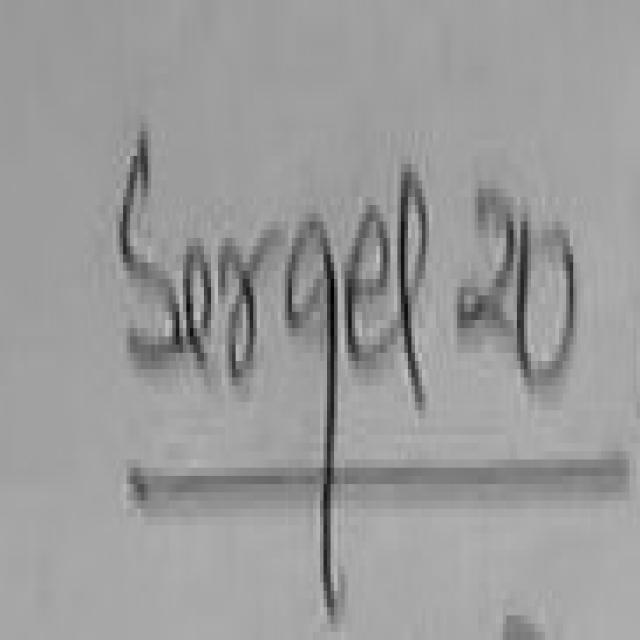 Sergel 20